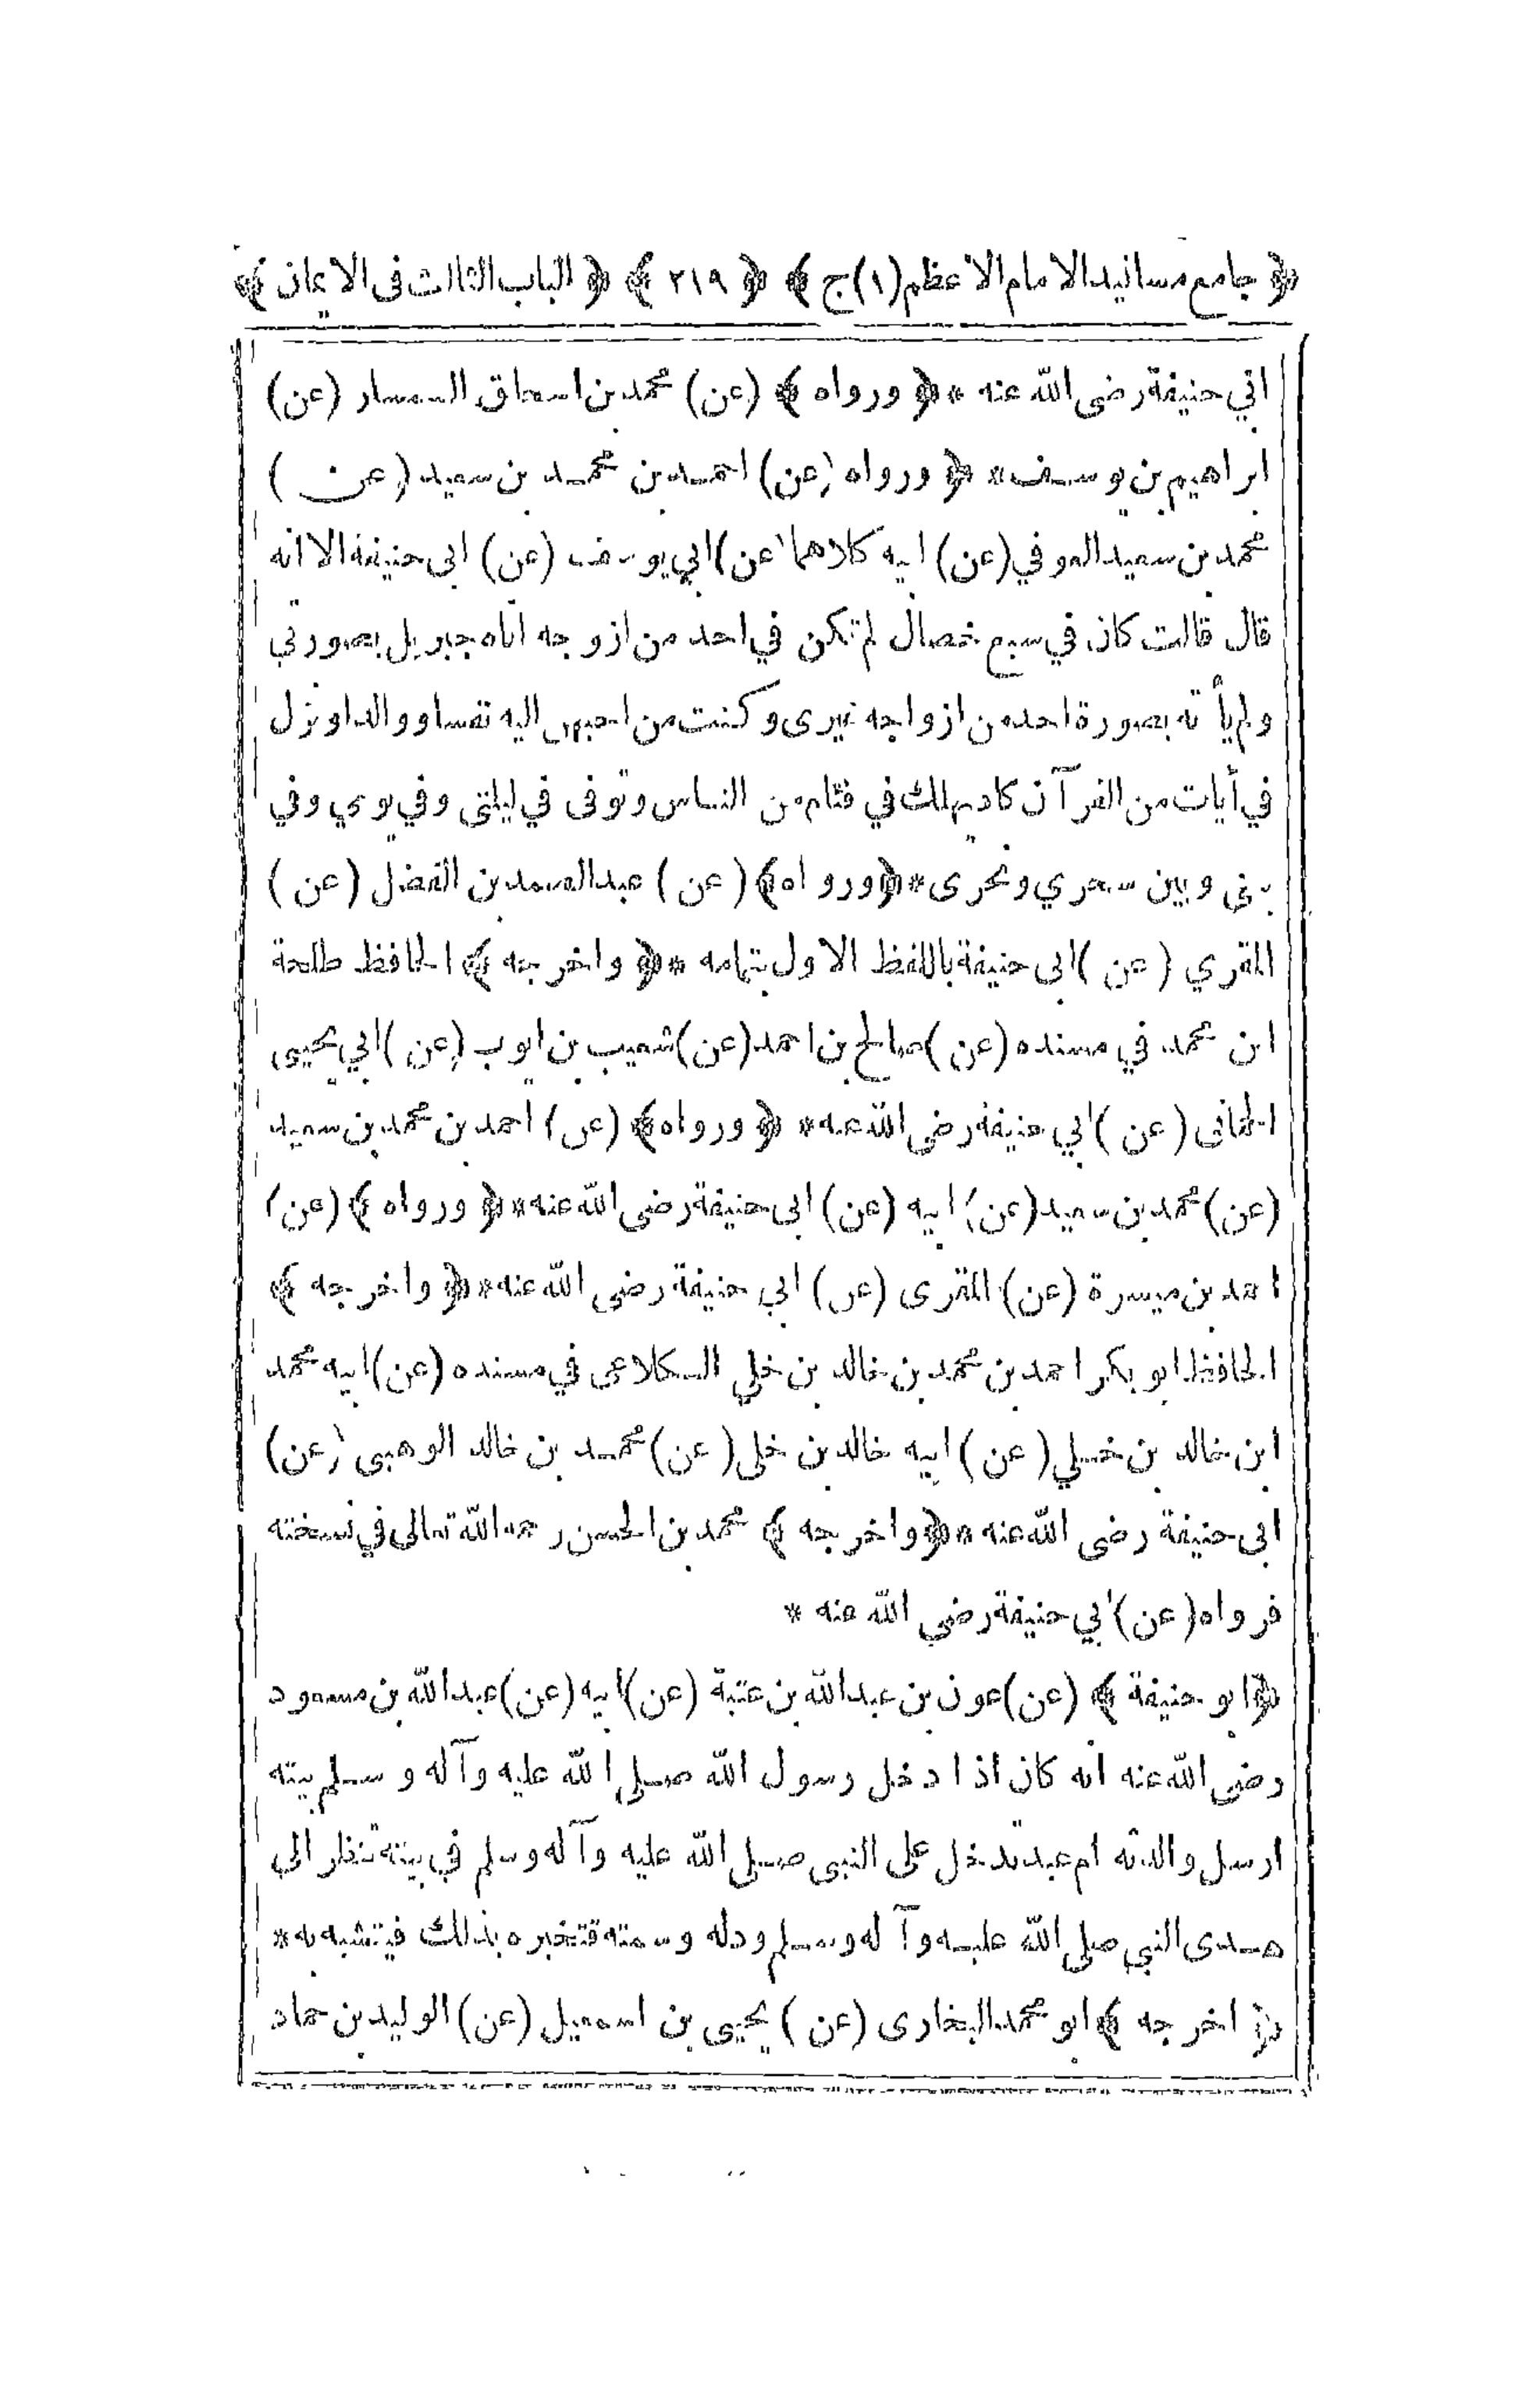 ﴿ جامع مسانيد الامام الاعظم (١) ج ﴾ ﴿ ٢١٩ ﴾ ﴿ الباب الثالث فى الايمان ﴾
ابي حنيفة رضى الله عنه * ﴿ ورواه ﴾ (عن) محمد بن اسحاق السمسار (عن)
ابراهيم بن يوسف * ﴿ ورواه (عن) احمد بن محمد بن سعيد (عن)
محمد بن سعيد العوفي (عن) ابيه كلاهما (عن) ابي يوسف (عن) ابى حنيفة الا انه
قال قالت كان في سبع خصال لم تكن في احد من ازوجه اتاه جبريل بصورتي
ولم يأ ته بصورة احد من ازواجه غيرى وكنت من احبهن اليه نفسا ووالدا ونزل
في أيات من القرآن كاد يهلك في فئام من الناس وتوفى في ليلتى وفي يومي وفي
بيتى وبين سحري ونحرى * ﴿ ورواه ﴾ (عن) عبد الصمد بن الفضل (عن)
المقري (عن) ابى حنيفة باللفظ الاول بتمامه * ﴿ واخرجه ﴾ الحافظ طلحة
ابن محمد في مسنده (عن) صالح بن احمد (عن) شعيب بن ايوب (عن) ابي يحيى
الحمانى (عن) ابي حنيفة رضى الله عنه * ﴿ ورواه ﴾ (عن) احمد بن محمد بن سعيد
(عن) محمد بن سعيد (عن) ابيه (عن) ابى حنيفة رضى الله عنه * ﴿ ورواه ﴾ (عن)
احمد بن ميسرة (عن) المقرى (عن) ابي حنيفة رضى الله عنه * ﴿ واخرجه ﴾
الحافظ ابو بكر احمد بن محمد بن خالد بن خلي الكلاعى في مسنده (عن) ابيه محمد
ابن خالد بن خلي (عن) ابيه خالد بن خلى (عن) محمد بن خالد الوهبى (عن)
ابى حنيفة رضى الله عنه * ﴿ واخرجه ﴾ محمد بن الحسن رحمه الله تعالى في نسخته
فرواه (عن) ابي حنيفة رضي الله عنه *
﴿ ابو حنيفة ﴾ (عن) عون بن عبد الله بن عتبة (عن) ابيه (عن) عبد الله بن مسعود
رضى الله عنه انه كان اذا دخل رسول الله صلى الله عليه وآله وسلم بيته
ارسل والدته ام عبد تدخل على النبى صلى الله عليه وآله وسلم في بيته تنظر الى
هدى النبي صلى الله عليه وآله وسلم ودله وسمته فتخبره بذلك فيتشبه به *
﴿ اخرجه ﴾ ابو محمد البخارى (عن) يحيى بن اسمعيل (عن) الوليد بن حماد